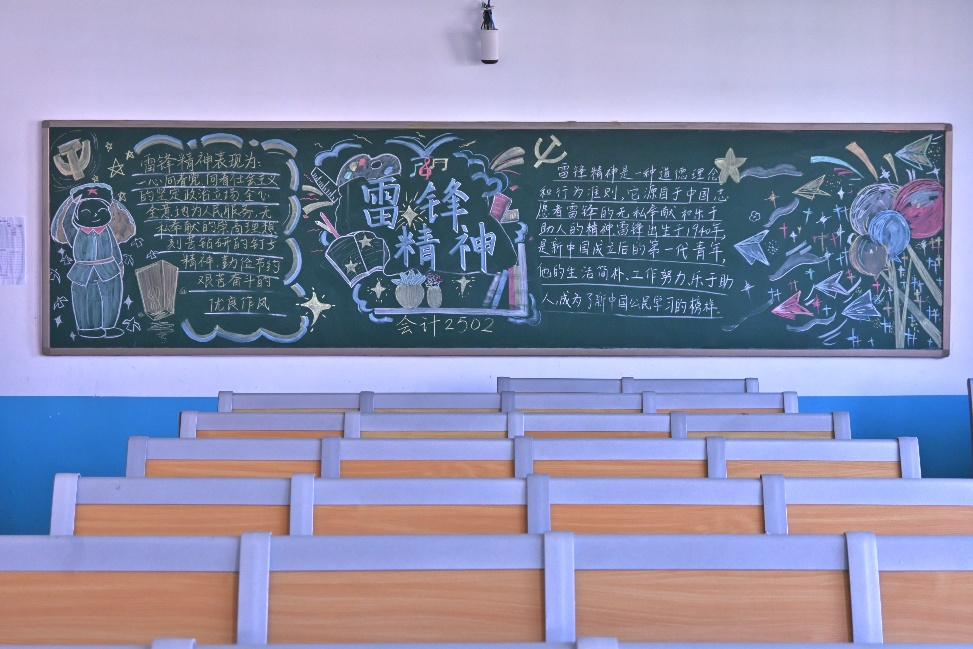 雷锋精神表现为:
一心向着党,向着社会主义
的坚定政治立场全心
全意地为人民服务,无
私奉献的崇高理想
刻苦钻研的钉子
精神,勤俭节约
艰苦奋斗的
优良作风
3月
雷锋
精神
会计2502
雷锋精神是一种道德理念
和行为准则,它源自于中国志
愿者雷锋的无私奉献和乐于
助人的精神雷锋出生于1940年,
是新中国成立后的第一代青年,
他的生活简朴、工作努力、乐于助
人,成为了新中国公民学习的榜样.